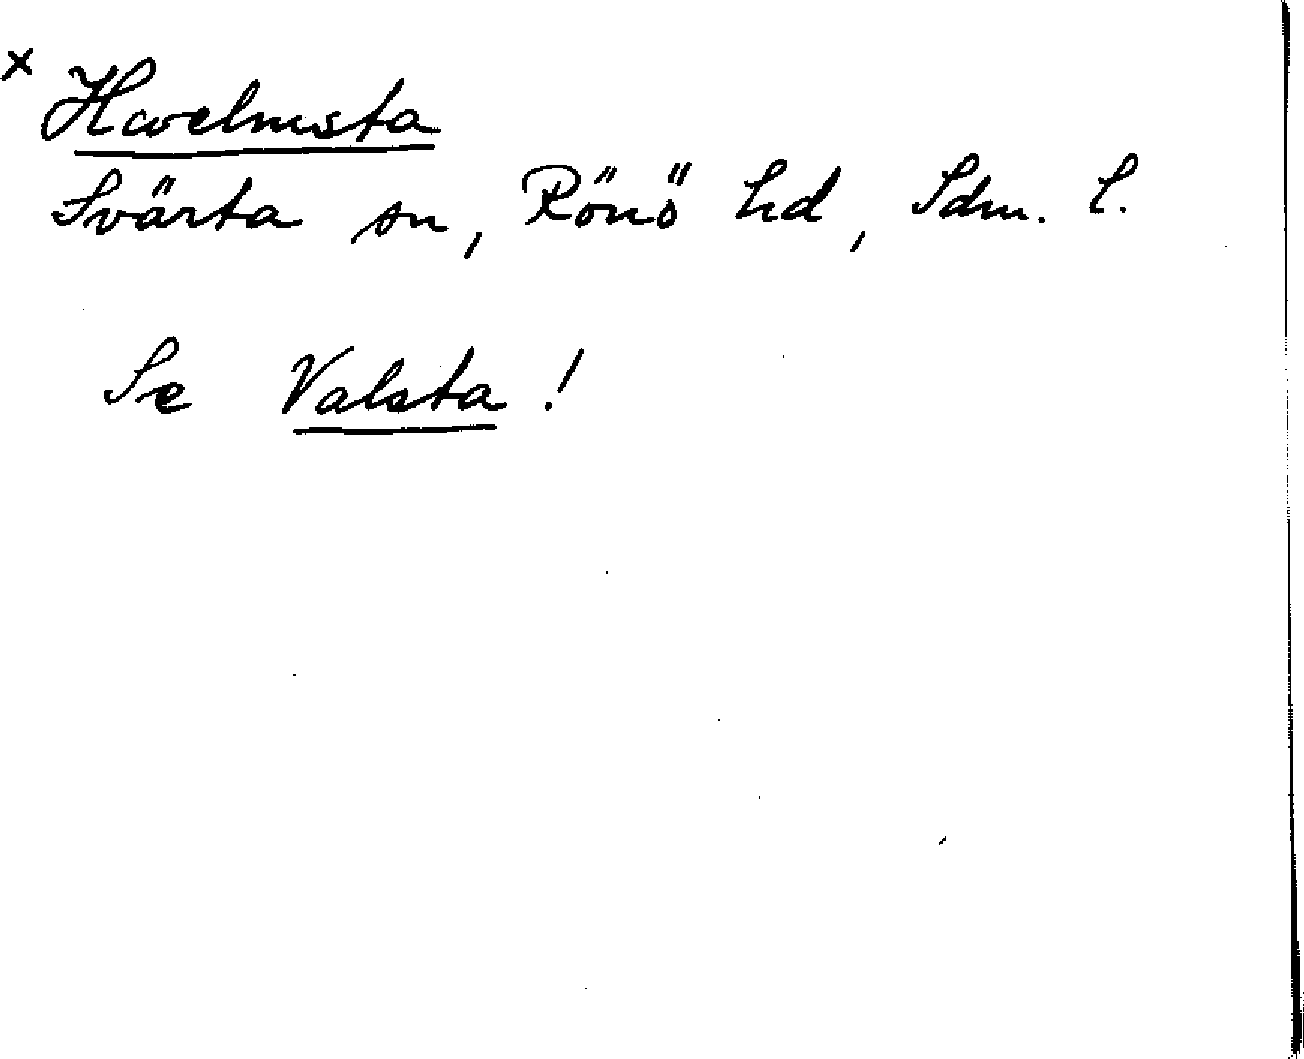 x Hwelmsta
Svärta sn, Rönö hd, Sdm. l.
Se Valsta!